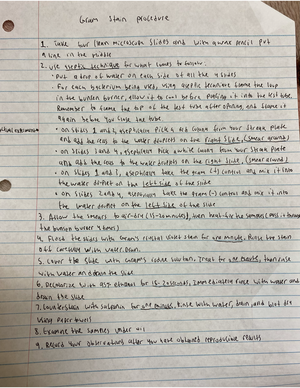 Gram Stain procedure
1. Take four clean microscope slides and with a wax pencil put
a line in the middle
2. use aseptic technique for what comes to follow:
• Put a drop of water on each side of all the 4 slides
• For each bacterium being used, using aseptic technique flame the loop
in the bunsen burner, allow it to cool before putting it into the test tube.
Remember to flame the top of the test tube after opening and flame it
again before you close the tube.
• on slides 1 and 2, aseptically pick a red colony from your streak plate
and add the cells to the water droplets on the right side. (smear around)
• on slides 3 and 4, aseptically pick a white colony from your streak plate
and add the cells to the water droplets on the right side. (smear around)
• on slides 1 and 3, aseptically take the gram (+) control and mix it into
the water droplet on the left side of the slide
• on slides 2 and 4, aseptically take the gram (-) control and mix it into
the water droplet on the left side of the slide
3. Allow the smears to air-dry (15-20 minutes), then heat-fix the samples (pass it through
the bunsen burner 3 times)
4. Flood the slides with Gram's crystal violet stain for one minute. Rinse the stain
off carefully with water. Drain.
5. Cover the slide with Gram's iodine solution. Treat for one minute, then rinse
with water and drain the slide
6. Decolorize with 95% ethanol for 15-20 seconds. Immediately rinse with water and
drain the slide
7. Counterstain with safranin for one minute. Rinse with water, drain, and blot dry
using paper towels
8. Examine the samples under oil
9. Record your observations after you have obtained reproducible results